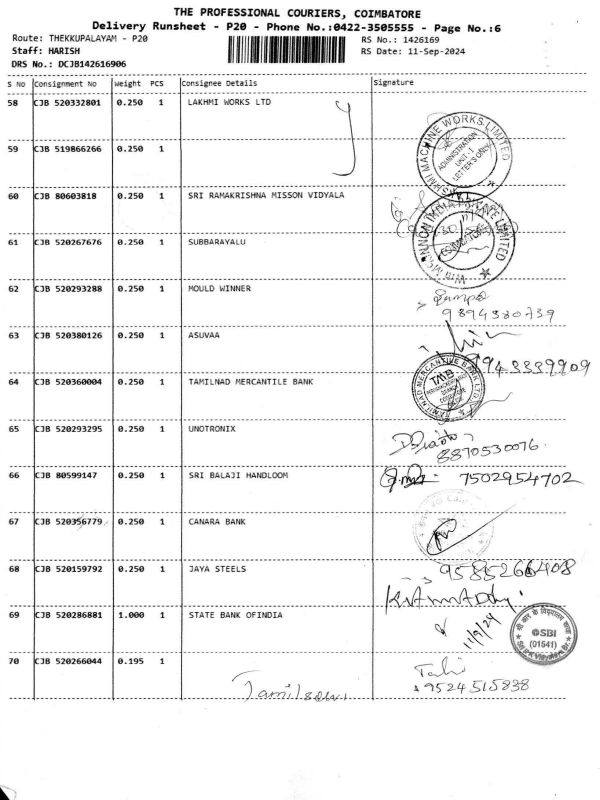 THE PROFESSIONAL COURIERS, COIMBATORE
Delivery Runsheet - P20 - Phone No.:0422-3505555 - Page No.:6
Route: THEKKUPALAYAM - P20
RS No.: 1426169
Staff: HARISH
RS Date: 11-Sep-2024
DRS No.: DCJB142616906
S No Consignment No Weight PCS Consignee Details Signature
58 CJB 520332801 0.250 1 LAKHMI WORKS LTD
59 CJB 519866266 0.250 1
MACHINE WORKS LIMITED
ADMINISTRATION
UNIT-1
LETTER'S ONLY
60 CJB 80603818 0.250 1 SRI RAMAKRISHNA MISSON VIDYALA
INDIA PRIVATE LIMITED
COIMBATORE
61 CJB 520267676 0.250 1 SUBBARAYALU
62 CJB 520293288 0.250 1 MOULD WINNER
9894330739
63 CJB 520380126 0.250 1 ASUVAA
9943339909
64 CJB 520360004 0.250 1 TAMILNAD MERCANTILE BANK
TAMILNAD MERCANTILE BANK LTD
TMB
65 CJB 520293295 0.250 1 UNOTRONIX
8870530076
66 CJB 80599147 0.250 1 SRI BALAJI HANDLOOM
7502954702
67 CJB 520356779 0.250 1 CANARA BANK
68 CJB 520159792 0.250 1 JAYA STEELS
9585266408
69 CJB 520286881 1.000 1 STATE BANK OFINDIA
11/9/24
SBI
(01541)
70 CJB 520266044 0.195 1
9524515838
Tamilselvi